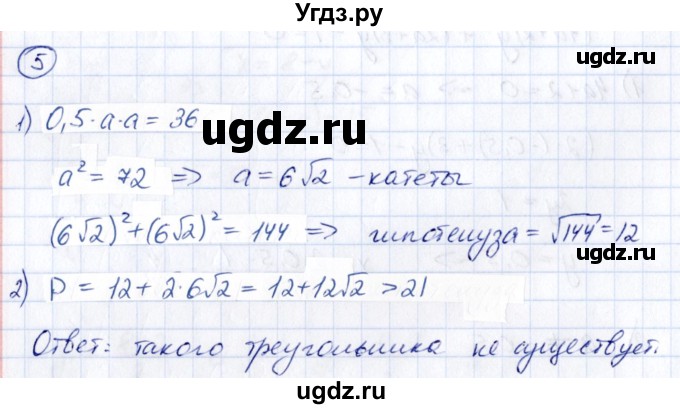 Угдз.ру
ugdz.ru
5
1) 0,5·a·a = 36
ugdz.ru
a² = 72 => a = 6√2 - катеты
ugdz.ru
(6√2)² + (6√2)² = 144 => гипотенуза = √144 = 12
2) P = 12 + 2·6√2 = 12 + 12√2 > 21
ugdz.ru
Ответ: такого треугольника не существует.
ugdz.ru